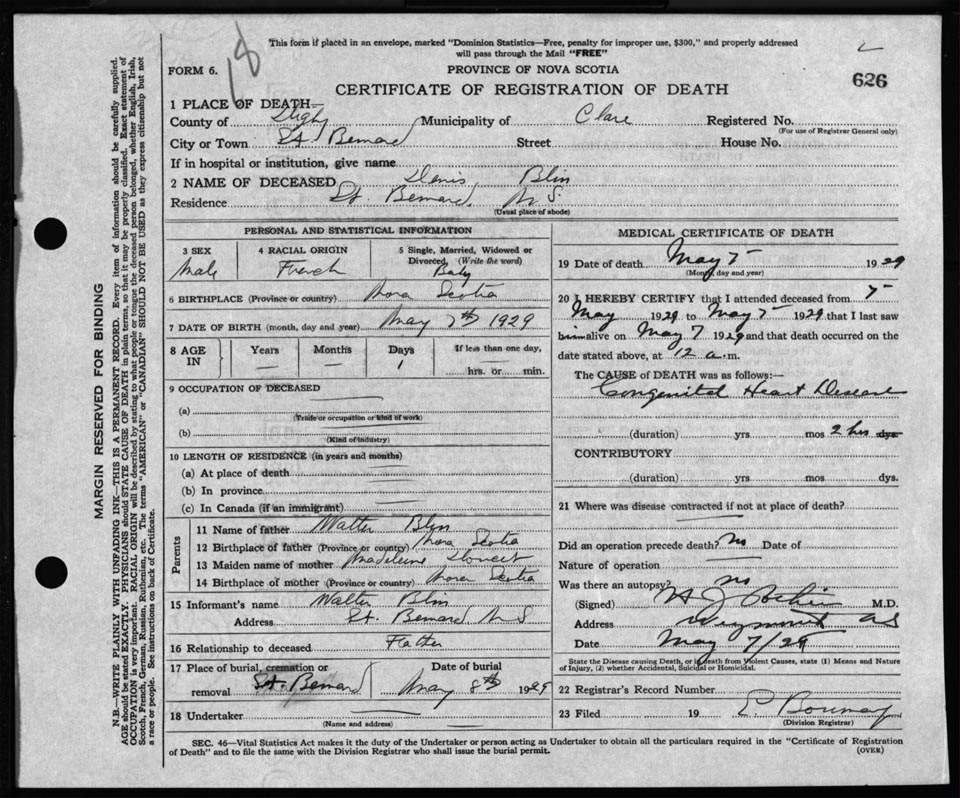 This form if placed in an envelope, marked "Dominion Statistics—Free, penalty for improper use, $300," and properly addressed
will pass through the Mail "FREE"
18
FORM 6.
PROVINCE OF NOVA SCOTIA
626
CERTIFICATE OF REGISTRATION OF DEATH
1 PLACE OF DEATH—
County of Digby Municipality of Clare Registered No.
(For use of Registrar General only)
City or Town St. Bernard Street House No.
If in hospital or institution, give name
2 NAME OF DECEASED Denis Blin
Residence St. Bernard, N S
(Usual place of abode)
PERSONAL AND STATISTICAL INFORMATION
3 SEX 4 RACIAL ORIGIN 5 Single, Married, Widowed or
Divorced, (Write the word)
Male French Baby
6 BIRTHPLACE (Province or country) Nova Scotia
7 DATE OF BIRTH (month, day and year) May 7th 1929
8 AGE IN Years Months Days If less than one day,
— — 1 hrs. or min.
9 OCCUPATION OF DECEASED
(a)
(Trade or occupation or kind of work)
(b)
(Kind of industry)
10 LENGTH OF RESIDENCE (in years and months)
(a) At place of death
(b) In province
(c) In Canada (if an immigrant)
Parents
11 Name of father Walter Blin
12 Birthplace of father (Province or country) Nova Scotia
13 Maiden name of mother Madeleine Doucet
14 Birthplace of mother (Province or country) Nova Scotia
15 Informant's name Walter Blin
Address St. Bernard N S
16 Relationship to deceased Father
17 Place of burial, cremation or Date of burial
removal St. Bernard May 8th 1929
18 Undertaker
(Name and address)
MEDICAL CERTIFICATE OF DEATH
19 Date of death May 7 1929
(Month, day and year)
20 I HEREBY CERTIFY that I attended deceased from 7
May 1929 to May 7 1929 that I last saw
him alive on May 7 1929 and that death occurred on the
date stated above, at 12 a.m.
The CAUSE of DEATH was as follows:—
Congenital Heart Disease
(duration) yrs mos 2 hrs dys.
CONTRIBUTORY
(duration) yrs. mos. dys.
21 Where was disease contracted if not at place of death?
Did an operation precede death? No Date of
Nature of operation
Was there an autopsy? no
(Signed) M.D.
Address Weymouth NS
Date May 7/29
State the Disease causing Death, or in death from Violent Causes, state (1) Means and Nature
of Injury, (2) whether Accidental, Suicidal or Homicidal.
22 Registrar's Record Number
23 Filed 19
(Division Registrar)
SEC. 46—Vital Statistics Act makes it the duty of the Undertaker or person acting as Undertaker to obtain all the particulars required in the "Certificate of Registration
of Death" and to file the same with the Division Registrar who shall issue the burial permit. (OVER)
MARGIN RESERVED FOR BINDING
N.B.—WRITE PLAINLY WITH UNFADING INK—THIS IS A PERMANENT RECORD. Every item of information should be carefully supplied.
AGE should be stated EXACTLY. PHYSICIANS should STATE CAUSE OF DEATH in plain terms, so that it may be properly classified. Exact statement of
OCCUPATION is very important. RACIAL ORIGIN will be described by stating to what people or tongue the deceased person belonged, whether English, Irish,
Scotch, French, German, Russian, Ruthenian, etc. The terms "AMERICAN" or "CANADIAN" SHOULD NOT BE USED as they express citizenship but not
a race or people. See instructions on back of Certificate.